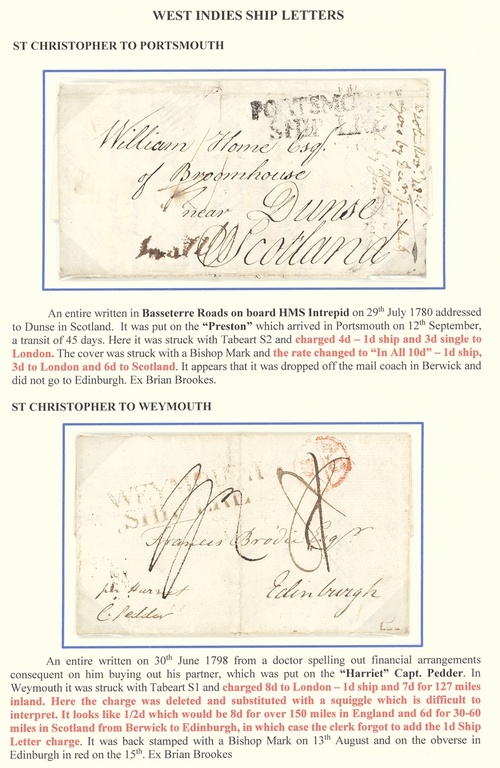 WEST INDIES SHIP LETTERS
ST CHRISTOPHER TO PORTSMOUTH
PORTSMOUTH
SHIP LRE
William Home Esqr.
of Broomhouse
near Dunse
Scotland
An entire written in Basseterre Roads on board HMS Intrepid on 29th July 1780 addressed
to Dunse in Scotland. It was put on the “Preston” which arrived in Portsmouth on 12th September,
a transit of 45 days. Here it was struck with Tabeart S2 and charged 4d – 1d ship and 3d single to
London. The cover was struck with a Bishop Mark and the rate changed to “In All 10d” – 1d ship,
3d to London and 6d to Scotland. It appears that it was dropped off the mail coach in Berwick and
did not go to Edinburgh. Ex Brian Brookes.
ST CHRISTOPHER TO WEYMOUTH
WEYMOUTH
SHIP LRE
Francis Brodie Esqr
Edinburgh
pr. Harriet
C. Pedder
An entire written on 30th June 1798 from a doctor spelling out financial arrangements
consequent on him buying out his partner, which was put on the “Harriet” Capt. Pedder. In
Weymouth it was struck with Tabeart S1 and charged 8d to London – 1d ship and 7d for 127 miles
inland. Here the charge was deleted and substituted with a squiggle which is difficult to
interpret. It looks like 1/2d which would be 8d for over 150 miles in England and 6d for 30-60
miles in Scotland from Berwick to Edinburgh, in which case the clerk forgot to add the 1d Ship
Letter charge. It was back stamped with a Bishop Mark on 13th August and on the obverse in
Edinburgh in red on the 15th. Ex Brian Brookes